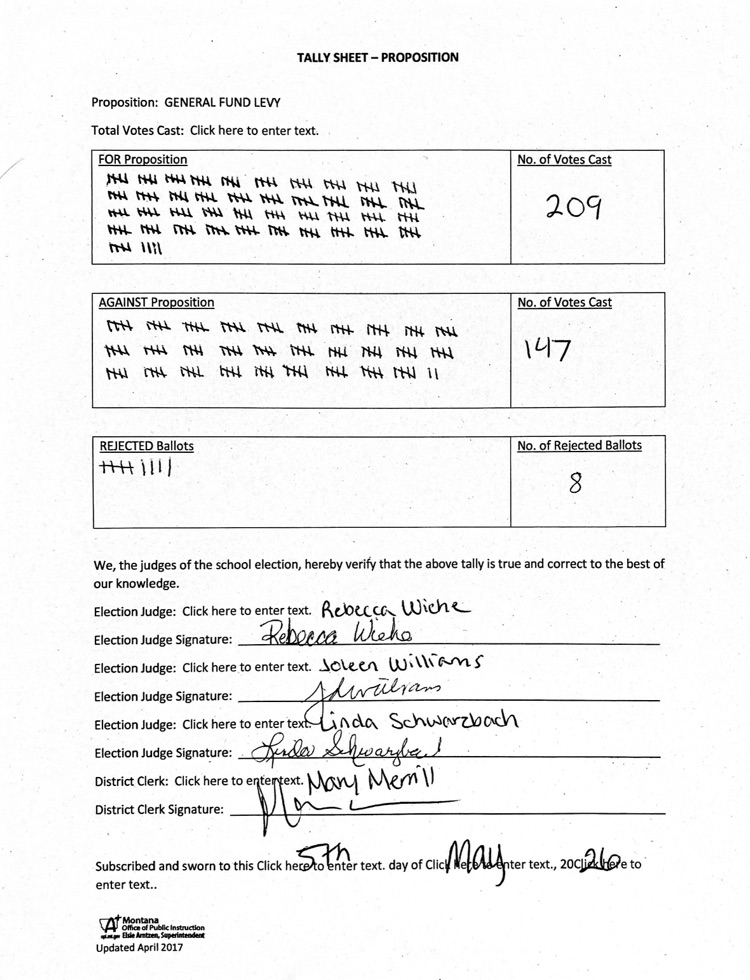 TALLY SHEET – PROPOSITION
Proposition: GENERAL FUND LEVY
Total Votes Cast: Click here to enter text.
FOR Proposition
No. of Votes Cast
209
AGAINST Proposition
No. of Votes Cast
147
REJECTED Ballots
No. of Rejected Ballots
8
We, the judges of the school election, hereby verify that the above tally is true and correct to the best of
our knowledge.
Election Judge: Click here to enter text. Rebecca Wiehe
Election Judge Signature: Rebecca Wiehe
Election Judge: Click here to enter text. Joleen Williams
Election Judge Signature: JdWilliams
Election Judge: Click here to enter text. Linda Schwarzbach
Election Judge Signature: Linda Schwarzbach
District Clerk: Click here to enter text. Mary Merrill
District Clerk Signature:
Subscribed and sworn to this Click here to enter text. 5th day of Click here to enter text., May 20Click here to 26
enter text..
Montana
Office of Public Instruction
opi.mt.gov Elsie Arntzen, Superintendent
Updated April 2017